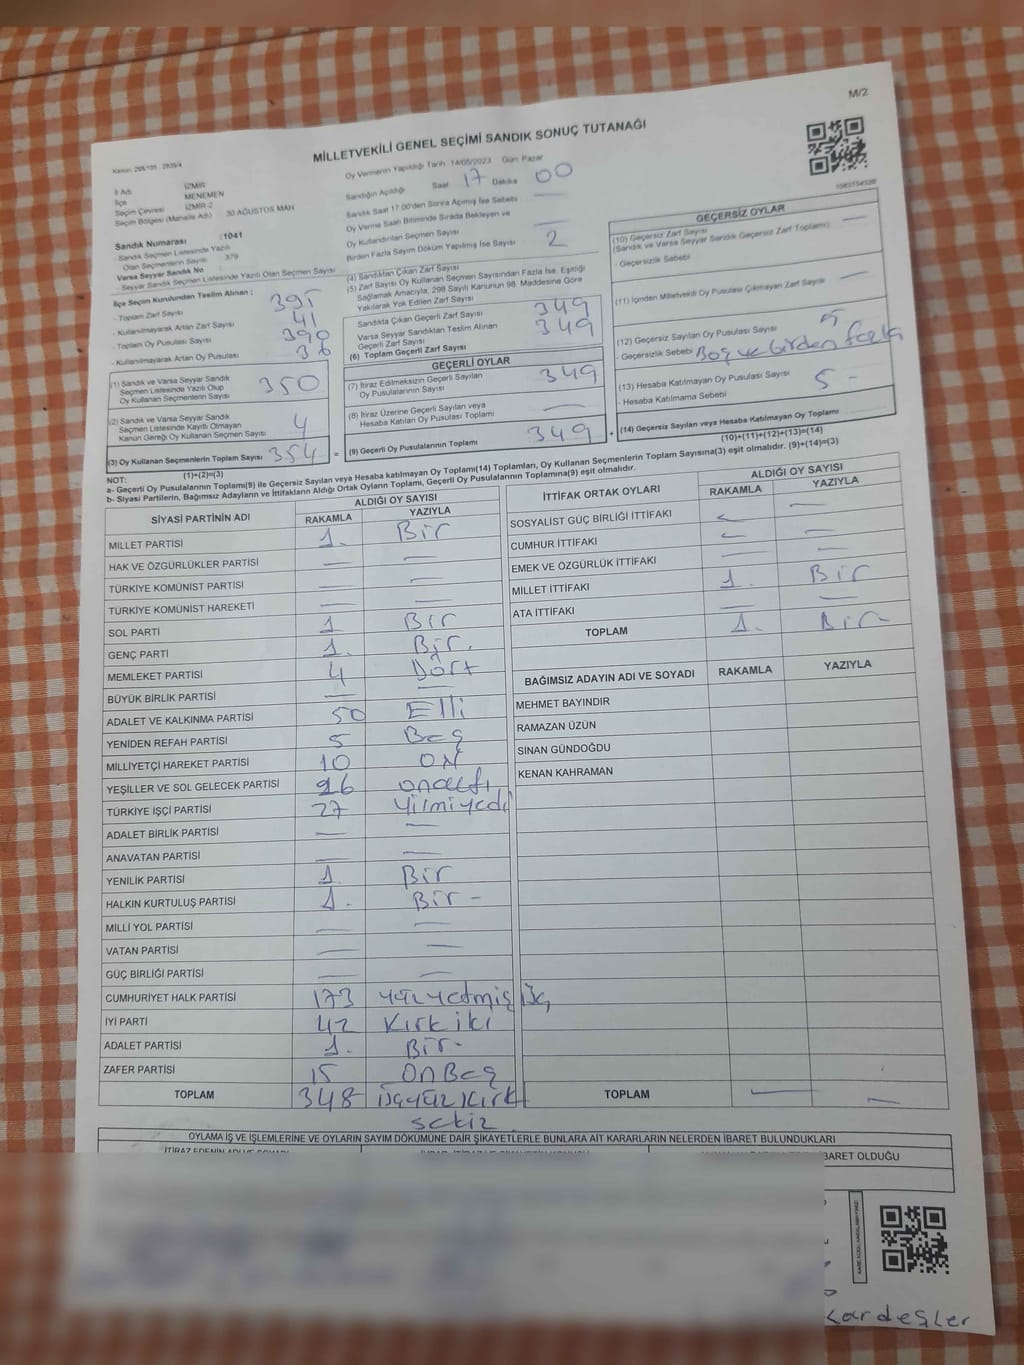 M/2
MİLLETVEKİLİ GENEL SEÇİMİ SANDIK SONUÇ TUTANAĞI
Oy Vermenin Yapıldığı Tarih: 14/05/2023 Gün: Pazar
İl Adı İZMİR
İlçe MENEMEN
Seçim Çevresi İZMİR-2
Seçim Bölgesi (Mahalle Adı) 30 AĞUSTOS MAH
Sandık Numarası :1041
-Sandık Seçmen Listesinde Yazılı
Olan Seçmenlerin Sayısı : 379
Varsa Seyyar Sandık No :
- Seyyar Sandık Seçmen Listesinde Yazılı Olan Seçmen Sayısı
İlçe Seçim Kurulundan Teslim Alınan ;
- Toplam Zarf Sayısı 395
- Kullanılmayarak Artan Zarf Sayısı 41
- Toplam Oy Pusulası Sayısı 390
- Kullanılmayarak Artan Oy Pusulası 36
(1) Sandık ve Varsa Seyyar Sandık
Seçmen Listesinde Yazılı Olup
Oy Kullanan Seçmenlerin Sayısı 350
(2) Sandık ve Varsa Seyyar Sandık
Seçmen Listesinde Kayıtlı Olmayan
Kanun Gereği Oy Kullanan Seçmen Sayısı 4
(3) Oy Kullanan Seçmenlerin Toplam Sayısı 354
(1)+(2)=(3)
Sandığın Açıldığı Saat 17 Dakika 00
Sandık Saat 17.00'den Sonra Açılmış İse Sebebi —
Oy Verme Saati Bitiminde Sırada Bekleyen ve
Oy Kullandırılan Seçmen Sayısı —
Birden Fazla Sayım Döküm Yapılmış İse Sayısı 2
(4) Sandıktan Çıkan Zarf Sayısı
(5) Zarf Sayısı Oy Kullanan Seçmen Sayısından Fazla İse, Eşitliği
Sağlamak Amacıyla, 298 Sayılı Kanunun 98. Maddesine Göre
Yakılarak Yok Edilen Zarf Sayısı
Sandıkta Çıkan Geçerli Zarf Sayısı 349
Varsa Seyyar Sandıktan Teslim Alınan
Geçerli Zarf Sayısı 349
(6) Toplam Geçerli Zarf Sayısı
GEÇERLİ OYLAR
(7) İtiraz Edilmeksizin Geçerli Sayılan
Oy Pusulalarının Sayısı 349
(8) İtiraz Üzerine Geçerli Sayılan veya
Hesaba Katılan Oy Pusulası Toplamı —
(9) Geçerli Oy Pusulalarının Toplamı 349
GEÇERSİZ OYLAR
(10) Geçersiz Zarf Sayısı —
(Sandık ve Varsa Seyyar Sandık Geçersiz Zarf Toplamı)
- Geçersizlik Sebebi
(11) İçinden Milletvekili Oy Pusulası Çıkmayan Zarf Sayısı
(12) Geçersiz Sayılan Oy Pusulası Sayısı 5
- Geçersizlik Sebebi Boş ve birden fazla
(13) Hesaba Katılmayan Oy Pusulası Sayısı 5 -
- Hesaba Katılmama Sebebi
(14) Geçersiz Sayılan veya Hesaba Katılmayan Oy Toplamı
(10)+(11)+(12)+(13)=(14)
NOT:
a- Geçerli Oy Pusulalarının Toplamı(9) ile Geçersiz Sayılan veya Hesaba katılmayan Oy Toplamı(14) Toplamları, Oy Kullanan Seçmenlerin Toplam Sayısına(3) eşit olmalıdır. (9)+(14)=(3)
b- Siyasi Partilerin, Bağımsız Adayların ve İttifakların Aldığı Ortak Oyların Toplamı, Geçerli Oy Pusulalarının Toplamına(9) eşit olmalıdır.
SİYASİ PARTİNİN ADI ALDIĞI OY SAYISI
RAKAMLA YAZIYLA
MİLLET PARTİSİ 1. Bir
HAK VE ÖZGÜRLÜKLER PARTİSİ — —
TÜRKİYE KOMÜNİST PARTİSİ — —
TÜRKİYE KOMÜNİST HAREKETİ — —
SOL PARTİ 1 Bir
GENÇ PARTİ 1. Bir.
MEMLEKET PARTİSİ 4 Dört
BÜYÜK BİRLİK PARTİSİ — —
ADALET VE KALKINMA PARTİSİ 50 Elli
YENİDEN REFAH PARTİSİ 5 Beş
MİLLİYETÇİ HAREKET PARTİSİ 10 ON
YEŞİLLER VE SOL GELECEK PARTİSİ 16 onaltı
TÜRKİYE İŞÇİ PARTİSİ 27 yilmiyedi
ADALET BİRLİK PARTİSİ — —
ANAVATAN PARTİSİ — —
YENİLİK PARTİSİ 1. Bir
HALKIN KURTULUŞ PARTİSİ 1. Bir -
MİLLİ YOL PARTİSİ — —
VATAN PARTİSİ — —
GÜÇ BİRLİĞİ PARTİSİ — —
CUMHURİYET HALK PARTİSİ 173 yüzyetmiş üç
İYİ PARTİ 42 Kırk iki
ADALET PARTİSİ 1. Bir-
ZAFER PARTİSİ 15 OnBeş
TOPLAM 348 üçyüzkırk
sekiz
İTTİFAK ORTAK OYLARI ALDIĞI OY SAYISI
RAKAMLA YAZIYLA
SOSYALİST GÜÇ BİRLİĞİ İTTİFAKI — —
CUMHUR İTTİFAKI — —
EMEK VE ÖZGÜRLÜK İTTİFAKI — —
MİLLET İTTİFAKI 1. Bir
ATA İTTİFAKI — —
TOPLAM 1. Bir-
BAĞIMSIZ ADAYIN ADI VE SOYADI RAKAMLA YAZIYLA
MEHMET BAYINDIR
RAMAZAN ÜZÜN
SİNAN GÜNDOĞDU
KENAN KAHRAMAN
TOPLAM — —
OYLAMA İŞ VE İŞLEMLERİNE VE OYLARIN SAYIM DÖKÜMÜNE DAİR ŞİKAYETLERLE BUNLARA AİT KARARLARIN NELERDEN İBARET BULUNDUKLARI
BARET OLDUĞU
kardeşler